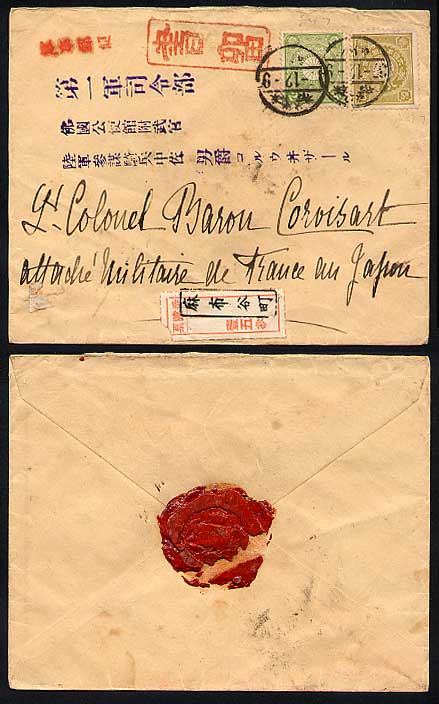 書留
第一軍司令部
佛國公使館附武官
陸軍参謀騎兵中佐 男爵コルウ井ザール
Lt Colonel Baron Corvisart
attaché Militaire de France au Japon
麻布谷町